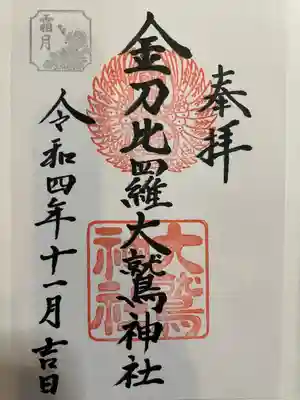 奉拝
金刀比羅大鷲神社
大鷲
神社
令和四年十一月吉日
霜月